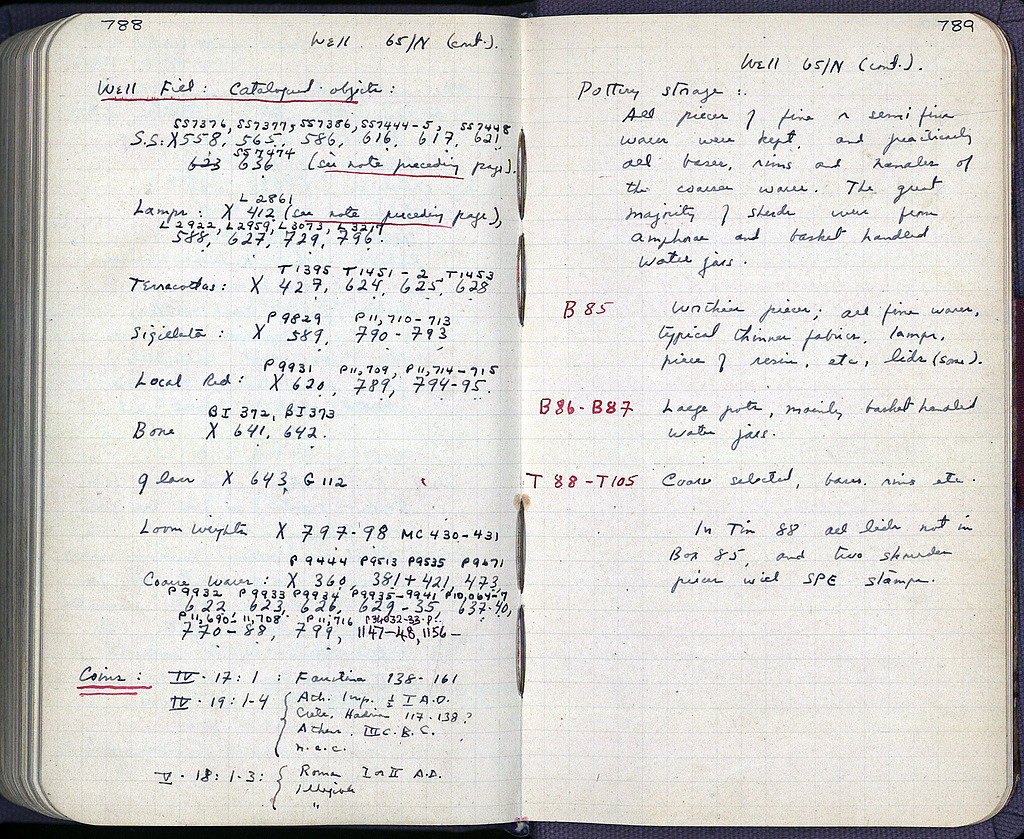 788
Well 65/N (cont.).
Well Fill: Catalogued objects:
SS7376, SS7377, SS7386, SS7444-5, SS7448
S.S: X 558, 565, 586, 616, 617, 621
SS7474
623 636 (see note preceding page).
L 2861
Lamps: X 412 (see note preceding page),
L2922, L2959, L3073, L3217
588, 627, 729, 796.
T1395 T1451-2, T1453
Terracottas: X 427, 624, 625, 628
P9829 P11,710-713
Sigillata: X 589, 790-793
P9931 P11,709, P11,714-715
Local Red: X 620, 789, 794-95.
BI 372, BI373
Bone X 641, 642.
glass X 643, G 112
Loom Weights X 797-98 MC 430-431
P9444 P9513 P9535 P9671
Coarse Wares: X 360, 381+421, 473,
P9932 P9933 P9934 P9935-9941 P10,064-7
622 623, 626, 629-35 637-40,
P11,690-11,708 P11,716 P34032-33-P!
770-88, 799, 1147-48, 1156-
Coins: IV-17:1 : Faustina 138-161
IV-19:1-4 { Ath. Imp. ½ I A.D.
Hadrian 117-138?
Athens III C. B.C.
n.a.c.
V-18:1-3: { Roman I or II A.D.
Illegible
"
789
Well 65/N (cont.).
Pottery storage:
All pieces of fine & semi fine
wares were kept, and practically
all bases, rims and handles of
the coarser wares. The great
majority of sherds were from
amphorae and basket handled
water jars.
B85 Worthier pieces; all fine wares,
typical thinner fabrics, lamps,
piece of resin, etc, lids (some).
B86-B87 Large pots, mainly basket handled
water jars.
T88-T105 Coarse selected, bases, rims etc.
In Tin 88 all lids not in
Box 85, and two shoulder
pieces with SPE stamps.